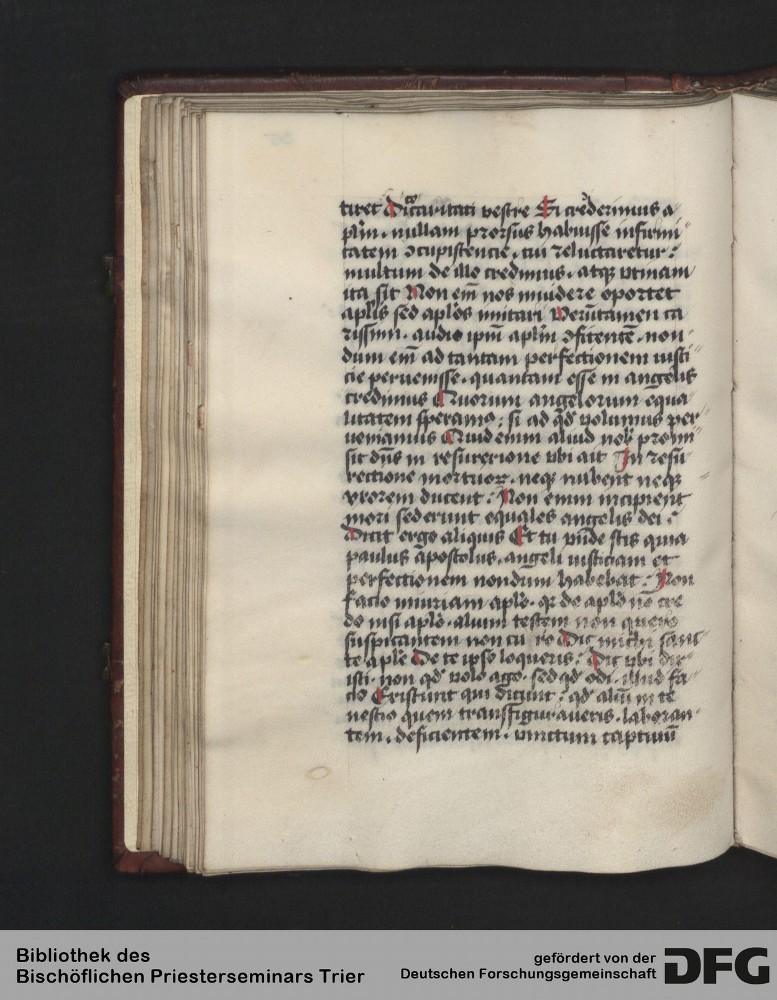 titet Dica caritati vestre Si crederimus a
plm. nullam prorsus habuisse infirmi
tatem ɔcupistencie. cui reluctaretur:
multum de illo credimus. atq vtinam
ita sit Non em̄ nos inuidere oportet
aplis sed aplos imitari Verūtamen ca
rissimi. audio ipm̄ aplm̄ ɔfitentē. non
dum em̄ ad tantam perfectionem iusti
cie peruenisse. quantam esse in angelis
credimus Quorum angelorum equa
litatem speramus: si ad qd volumus per
ueniamus Quid enim aliud nob promi
sit dn̄s in resurrexione vbi ait In resu
rectione mortuoꝝ. neq nubent neq
vxorem ducent: Non enim incipient
mori sed erunt equales angelis dei:
Dicit ergo aliquis Et tu vn̄de scis quia
paulus apostolus. angeli iusticiam et
perfectionem nondum habebat: Non
facio iniuriam aplo. qz de aplo nō cre
do nisi aplo. alium testem non quero
suspicantem non cu ro Dic michi sanc
te aple De te ipso loqueris: Dic vbi dix
isti. non qd volo ago. sed qd odi. illud fa
cio Existunt qui dicunt: qd aliū in te
nescio quem transfiguraueris. laboran
tem. deficientem. vinctum captiuū
Bibliothek des
Bischöflichen Priesterseminars Trier
gefördert von der
Deutschen Forschungsgemeinschaft
DFG